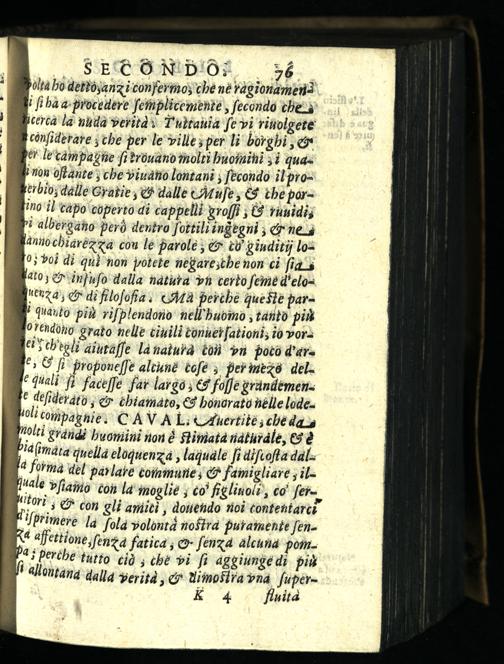 SECONDO. 76
volta ho detto, anzi confermo, che ne ragionamen-
ti si hà a procedere ſemplicemente, ſecondo che
ricerca la nuda verità. Tuttauia ſe vi riuolgete
a conſiderare, che per le ville, per li borghi, &
per le campagne ſi trouano molti huomini, i qua-
li non oſtante, che viuano lontani, ſecondo il pro-
uerbio, dalle Gratie, & dalle Muſe, & che por-
tino il capo coperto di cappelli groſſi, & ruuidi,
vi albergano però dentro ſottili ingegni, & ne
danno chiarezza con le parole, & co' giuditij lo-
ro; voi di quì non potete negare, che non ci ſia
dato, & infuſo dalla natura vn certo ſeme d'elo-
quenza, & di filoſofia. Ma perche queſte par-
ti quanto più riſplendono nell'huomo, tanto più
lo rendono grato nelle ciuili conuerſationi, io vor-
rei, ch'egli aiutaſſe la natura con vn poco d'ar-
te, & ſi proponeſſe alcune coſe, per mezo del-
le quali ſi faceſſe far largo, & foſſe grandemen-
te deſiderato, & chiamato, & honorato nelle lode-
uoli compagnie. CAVAL. Auertite, che da
molti grandi huomini non è ſtimata naturale, & è
biaſimata quella eloquenza, laquale ſi diſcoſta dal-
la forma del parlare commune, & famigliare, il-
quale vſiamo con la moglie, co' figliuoli, co' ſer-
uitori, & con gli amici, douendo noi contentarci
d'iſprimere la ſola volontà noſtra puramente ſen-
za affettione, ſenza fatica, & ſenza alcuna pom-
pa; perche tutto ciò, che vi ſi aggiunge di più
ſi allontana dalla verità, & dimoſtra vna ſuper-
K 4 fluità